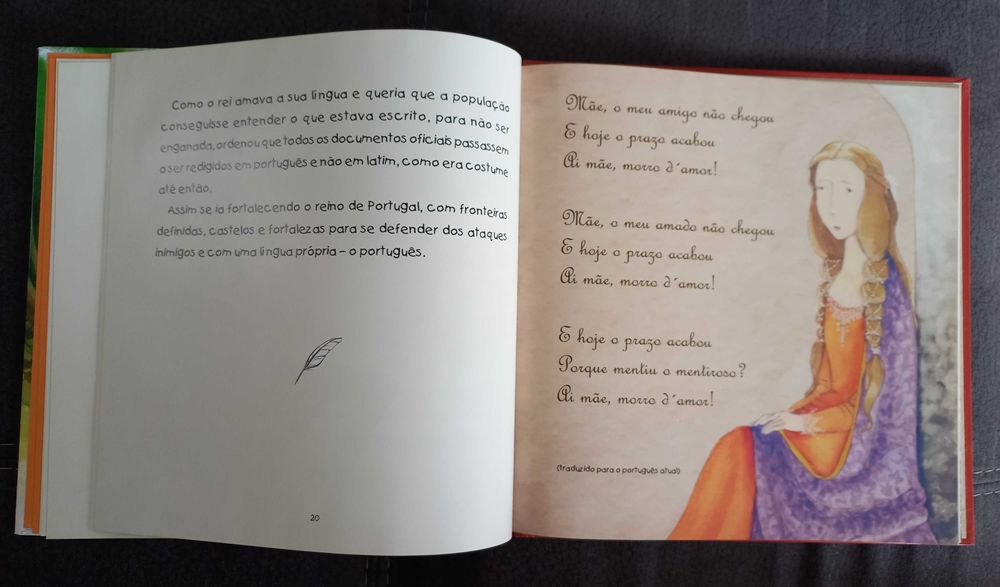 Como o rei amava a sua língua e queria que a população
conseguisse entender o que estava escrito, para não ser
enganada, ordenou que todos os documentos oficiais passassem
a ser redigidos em português e não em latim, como era costume
até então.
Assim se ia fortalecendo o reino de Portugal, com fronteiras
definidas, castelos e fortalezas para se defender dos ataques
inimigos e com uma língua própria – o português.
20
Mãe, o meu amigo não chegou
E hoje o prazo acabou
Ai mãe, morro d´amor!
Mãe, o meu amado não chegou
E hoje o prazo acabou
Ai mãe, morro d´amor!
E hoje o prazo acabou
Porque mentiu o mentiroso?
Ai mãe, morro d´amor!
(traduzido para o português atual)